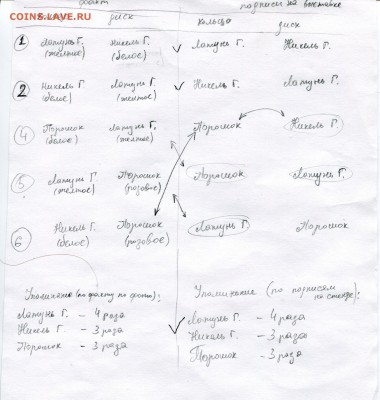 СОИНS.LAVE.RU
факт подписи на выставке
диск кольцо диск
1 Латунь Г. Никель Г. Латунь Г. Никель Г.
(желтое) (белое)
2 Никель Г. Латунь Г. Никель Г. Латунь Г.
(белое) (желтое)
4 Порошок Латунь Г. Порошок Никель Г.
(белое) (желтое)
5 Латунь Г Порошок Порошок Латунь Г.
(желтое) (розовое)
6 Никель Г. Порошок Латунь Г. Порошок
(белое) (розовое)
Упоминание (по факту по фото): Упоминание (по подписям
на стенде):
Латунь Г. - 4 раза Латунь Г. - 4 раза
Никель Г. - 3 раза Никель Г. - 3 раза
Порошок - 3 раза Порошок - 3 раза